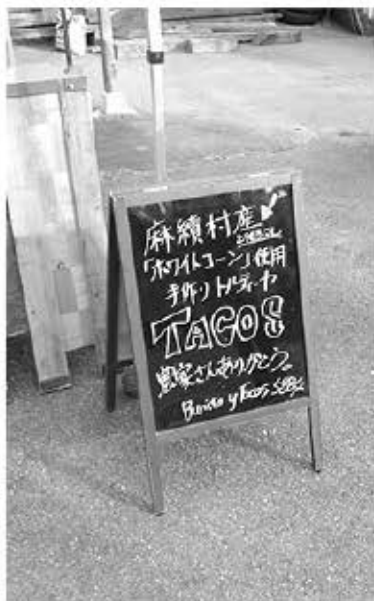 麻績村産
「ホワイトコーン」使用
手作りトルティーヤ
TACOS
農家さんありがとう。
Burrito y Tacos